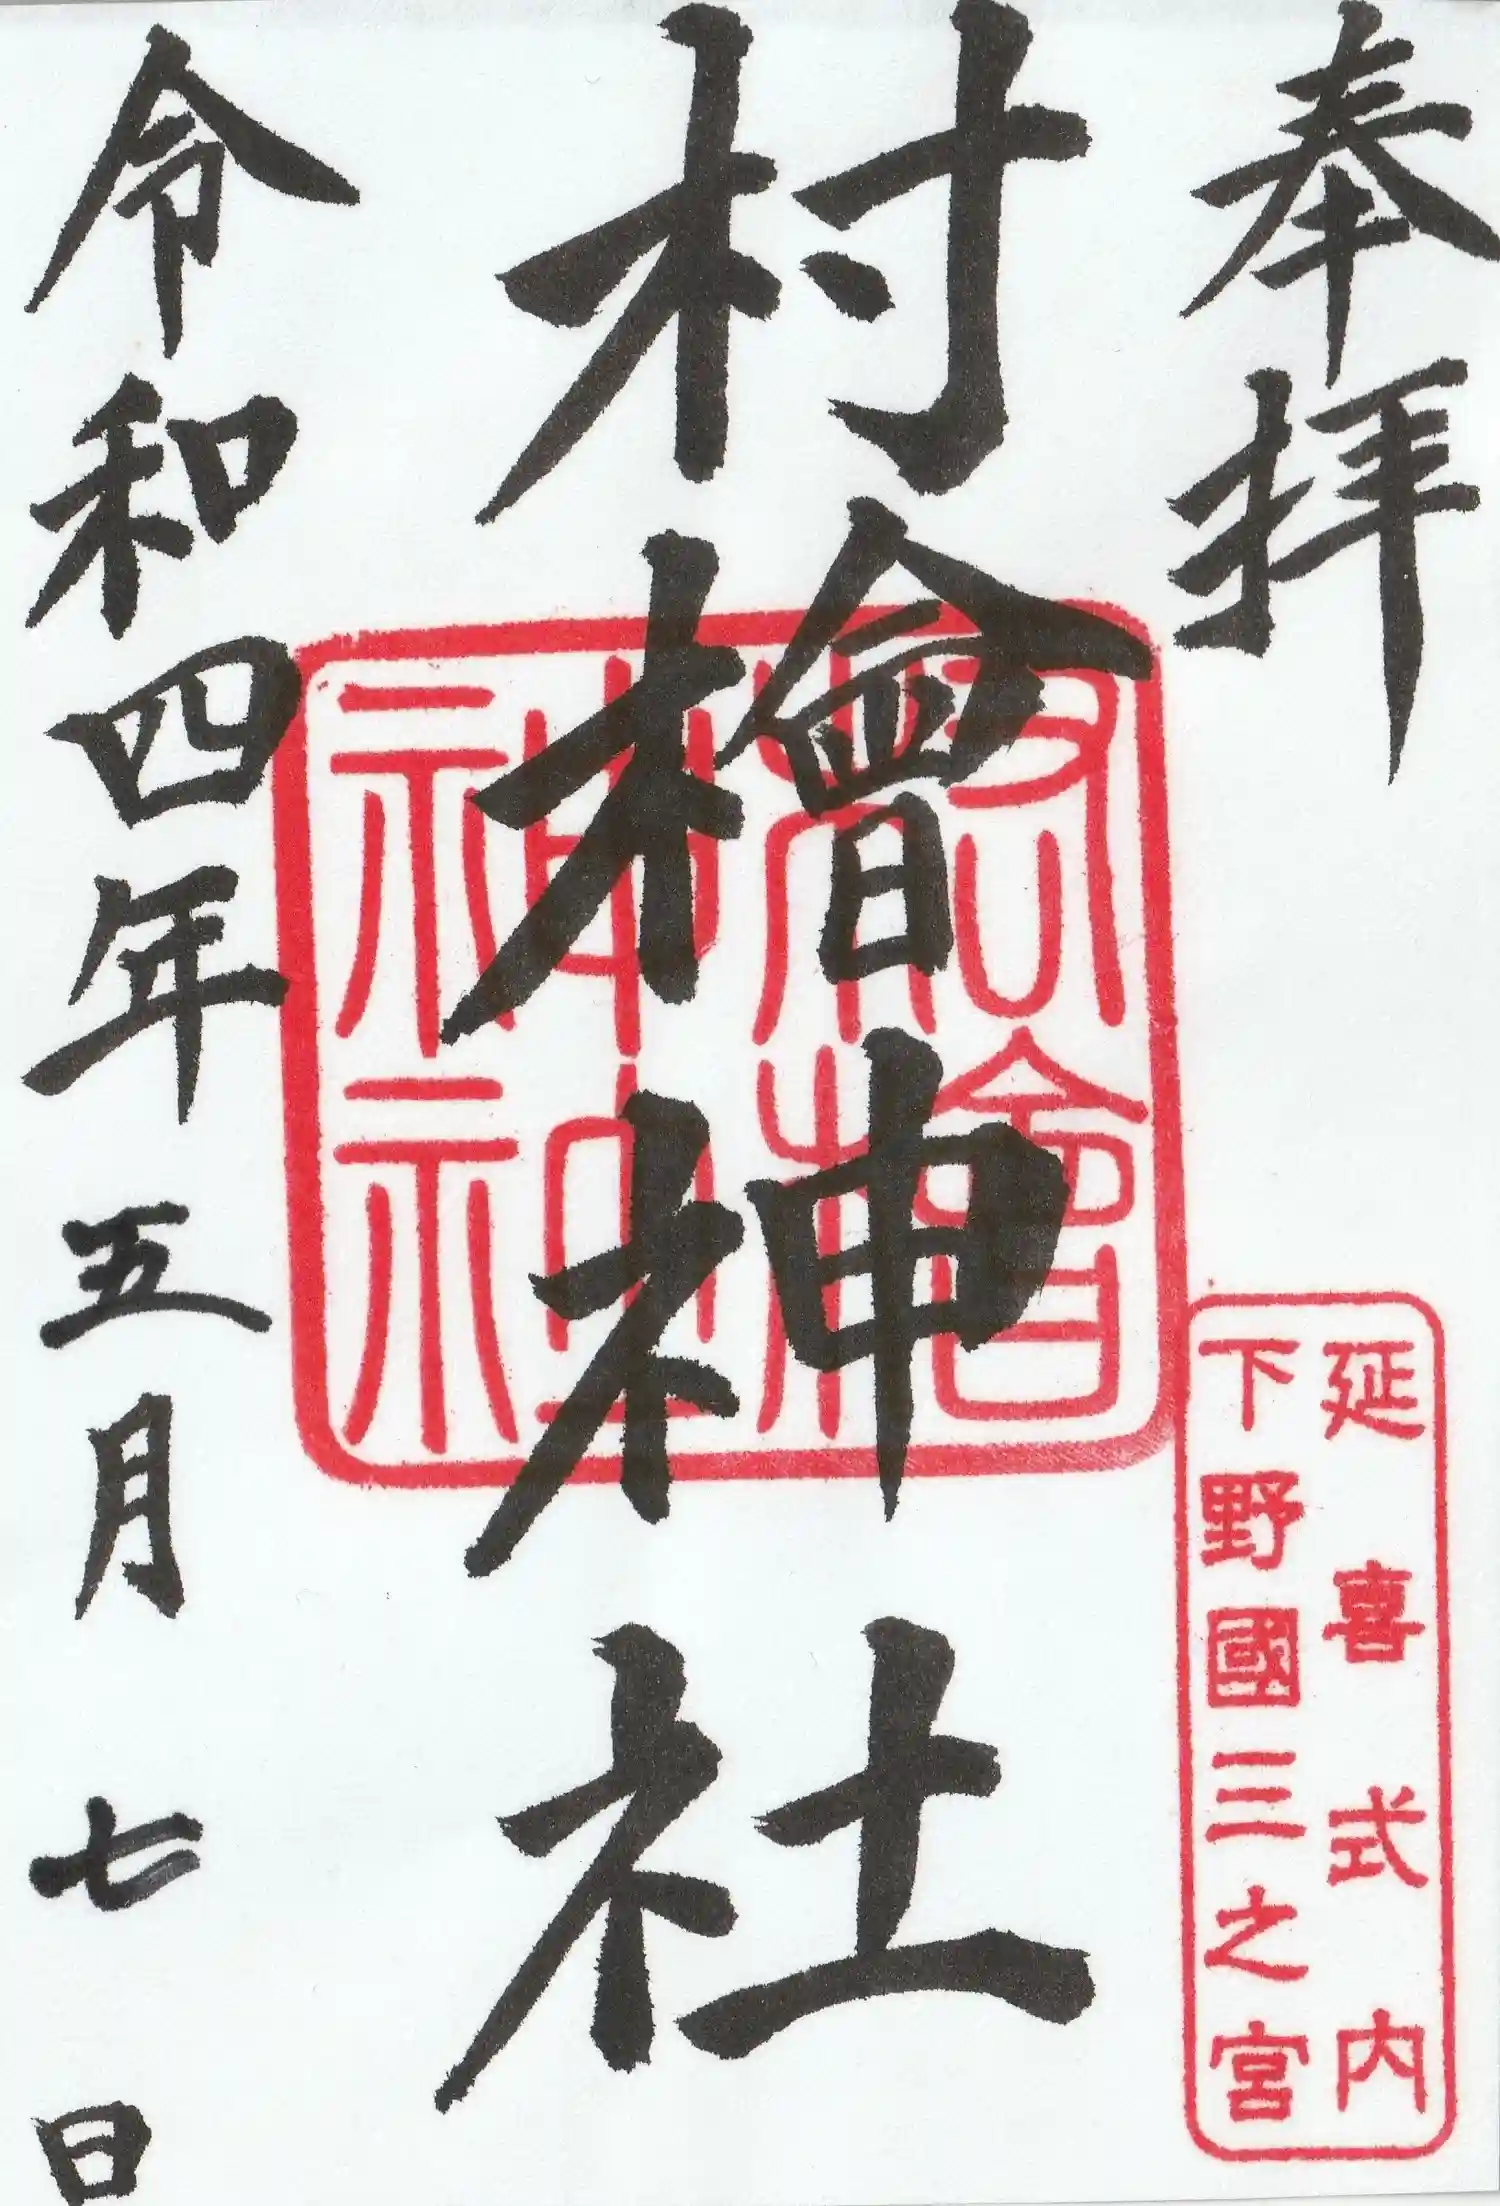 奉拝
延喜式内
下野國三之宮
村檜神社
村檜神社
令和四年五月七日